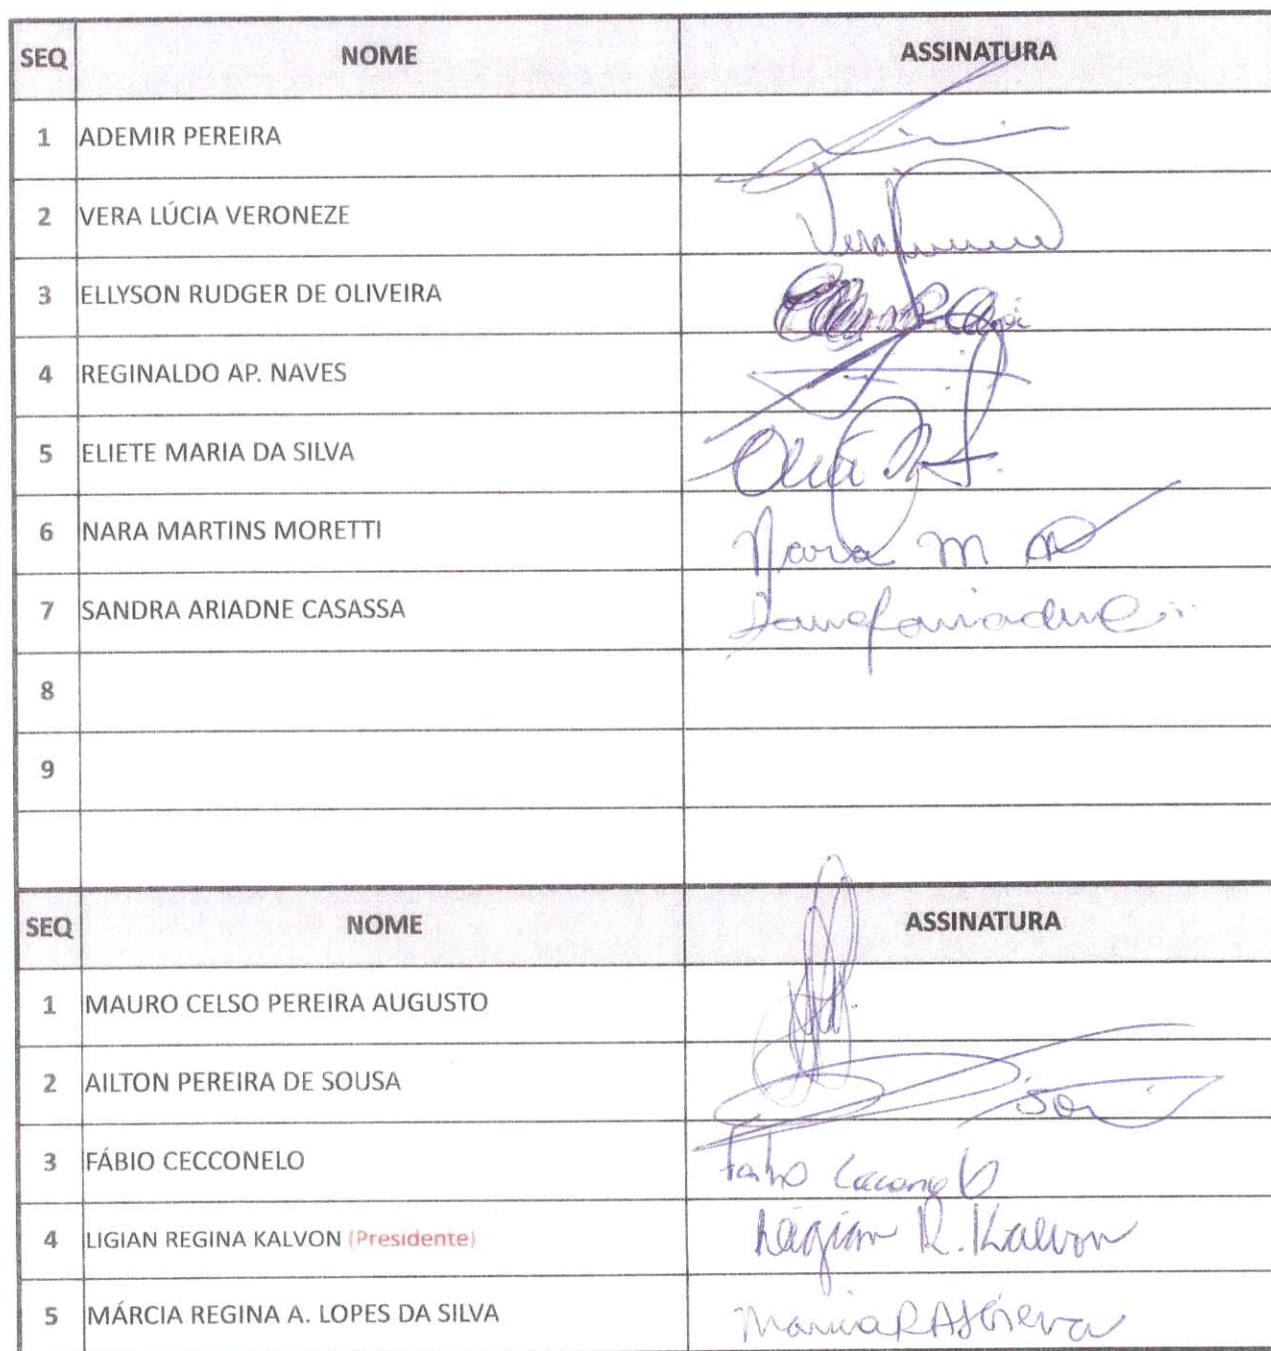 SEQ NOME ASSINATURA
1 ADEMIR PEREIRA
2 VERA LÚCIA VERONEZE Vera
3 ELLYSON RUDGER DE OLIVEIRA
4 REGINALDO AP. NAVES
5 ELIETE MARIA DA SILVA
6 NARA MARTINS MORETTI Nara M
7 SANDRA ARIADNE CASASSA
8
9
SEQ NOME ASSINATURA
1 MAURO CELSO PEREIRA AUGUSTO
2 AILTON PEREIRA DE SOUSA
3 FÁBIO CECCONELO Fabio Cecconelo
4 LIGIAN REGINA KALVON (Presidente) Ligian R. Kalvon
5 MÁRCIA REGINA A. LOPES DA SILVA